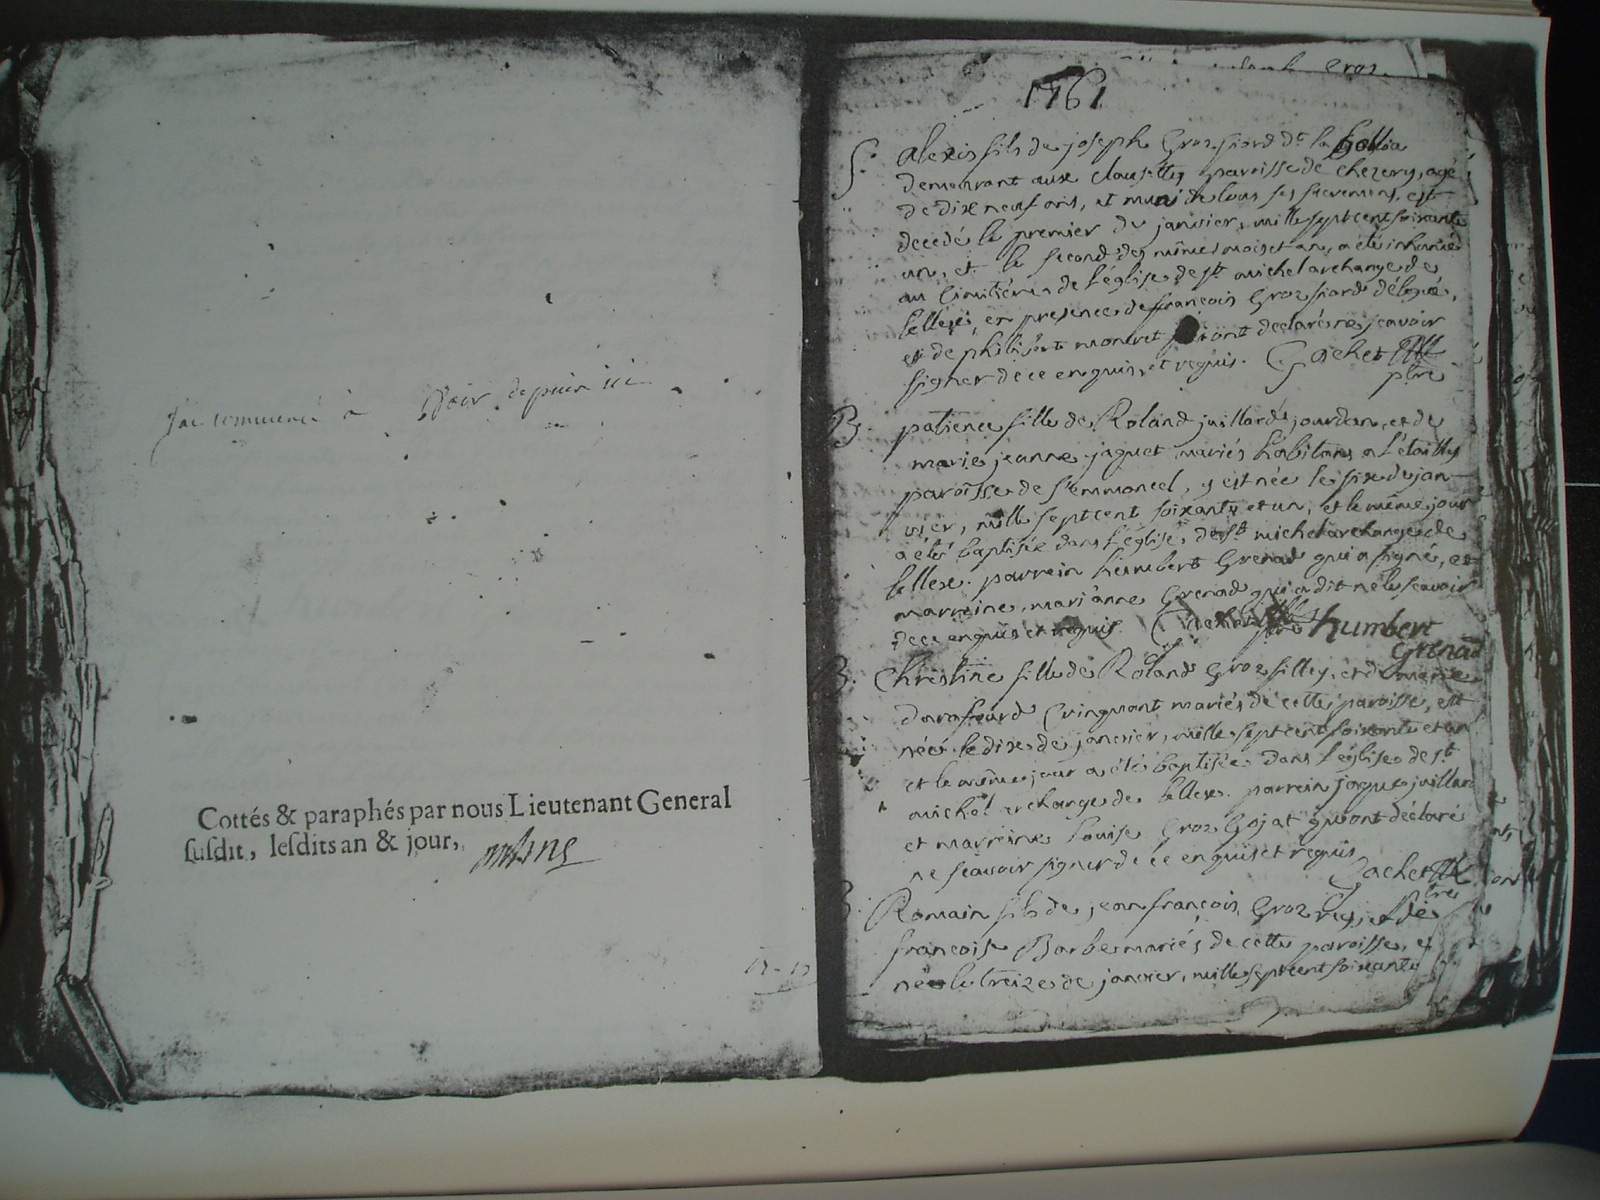 J'ai commencé à Voir depuis ici
Cottés & paraphés par nous Lieutenant General
susdit, lesdits an & jour,
12-12
Groz
1761
S. alexis fils de joseph Groz piord dt la
demeurant aux clousettes paroisse de chezery, agé
de dix neuf ans, et muni de tous ses sacremens, est
decedé le premier de janvier, mille sept cent soixante
un, et le second des mêmes mois et an, a été inhumé
au Cimitière de l'église de st michel archange de
lellex, en presence de françois Groz piord délogé,
et de philibert montret qui ont declarés ne sçavoir
signer de ce enquis, et requis. Gachet
ptre
B. patience fille de Roland juillard jourdan, et de
marie jeanne jaquet mariés habitans a l'étailley
paroisse de septmoncel, y est née le six de jan-
vier, mille sept cent soixante et un, et le même jour
a été baptisée dans l'église de st michel archange de
lellex. parrein humbert Grenad qui a signé, et
marreine mari'anne Grenad qui a dit ne le sçavoir
de ce enquis et requis. Gachet ptre humbert
Grenad
B. Christine fille de Roland Groz filley, et de marie
Cringuant mariés de cette paroisse, est
née le dix de janvier, mille sept cent soixante et un
et le même jour a été baptisée dans l'église de st
michel archange de lellex. parrein jaque juillard
et marreine Louise Groz Gojat qui ont déclaré
ne sçavoir signer de ce enquis et requis
Gachet
ptre
B. Romain fils de jean françois Groz rey, et de
francoise Barbe mariés de cette paroisse, est
né le treize de janvier, mille sept cent soixante